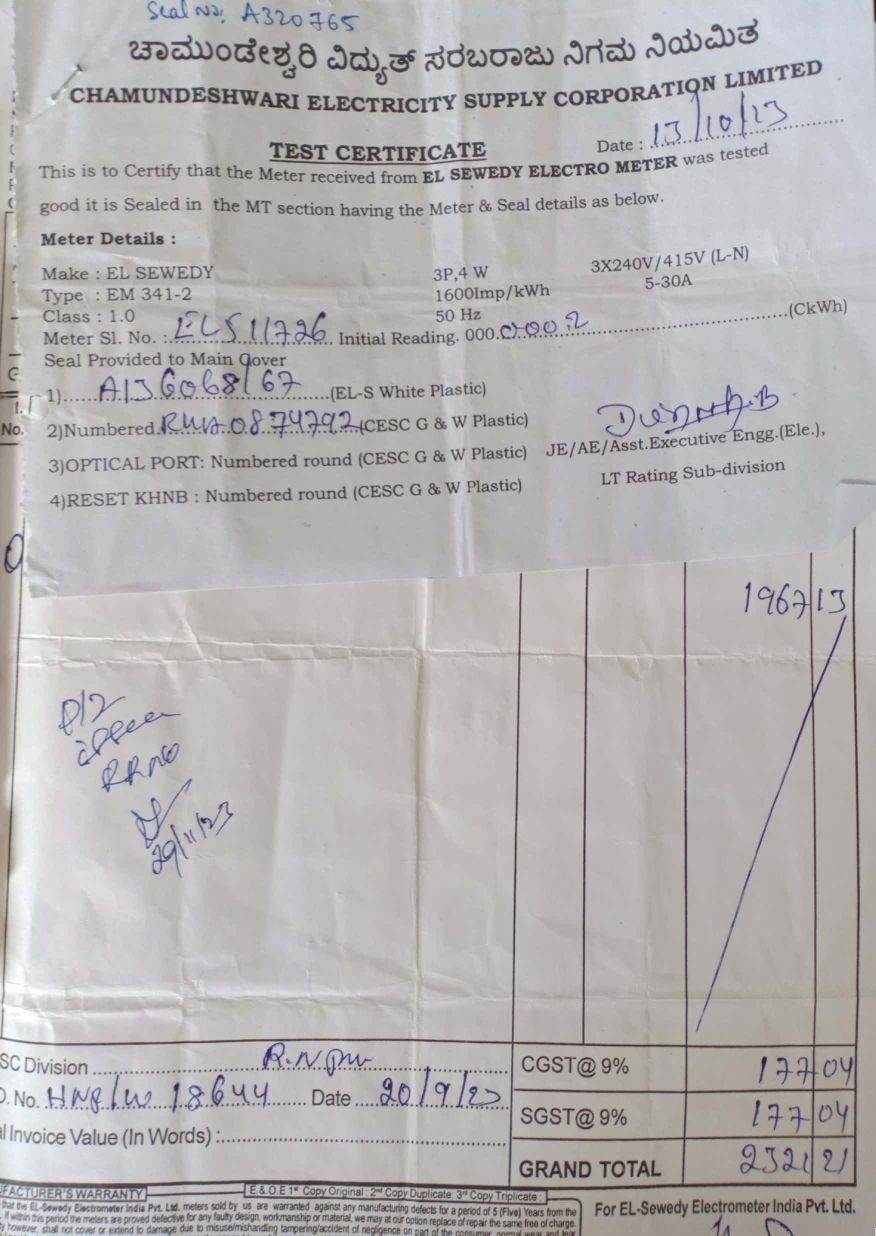 Seal No: A320765
ಚಾಮುಂಡೇಶ್ವರಿ ವಿದ್ಯುತ್ ಸರಬರಾಜು ನಿಗಮ ನಿಯಮಿತ
CHAMUNDESHWARI ELECTRICITY SUPPLY CORPORATION LIMITED
TEST CERTIFICATE Date : 13/10/23
This is to Certify that the Meter received from EL SEWEDY ELECTRO METER was tested
good it is Sealed in the MT section having the Meter & Seal details as below.
Meter Details :
Make : EL SEWEDY 3P,4 W 3X240V/415V (L-N)
Type : EM 341-2 1600Imp/kWh 5-30A
Class : 1.0 50 Hz
Meter Sl. No. : ELS11726 Initial Reading. 000.000.2 (CkWh)
Seal Provided to Main Cover
1) A136068/67 (EL-S White Plastic)
2)Numbered 0874792 (CESC G & W Plastic)
3)OPTICAL PORT: Numbered round (CESC G & W Plastic) JE/AE/Asst.Executive Engg.(Ele.),
4)RESET KHNB : Numbered round (CESC G & W Plastic) LT Rating Sub-division
No.
1967 13
RRNO
29/11/23
SC Division CGST@ 9% 177 04
O. No. 18644 Date 20/9/23
SGST@ 9% 177 04
l Invoice Value (In Words) :
GRAND TOTAL 2321 21
FACTURER'S WARRANTY E & O.E 1st Copy Original : 2nd Copy Duplicate: 3rd Copy Triplicate :
that the EL-Sewedy Electrometer India Pvt. Ltd. meters sold by us are warranted against any manufacturing defects for a period of 5 (Five) Years from the For EL-Sewedy Electrometer India Pvt. Ltd.
If within this period the meters are proved defective for any faulty design, workmanship or material, we may at our option replace of repair the same free of charge.
however, shall not cover or extend to damage due to misuse/mishandling tampering/accident of negligence on part of the consumer, normal wear and tear